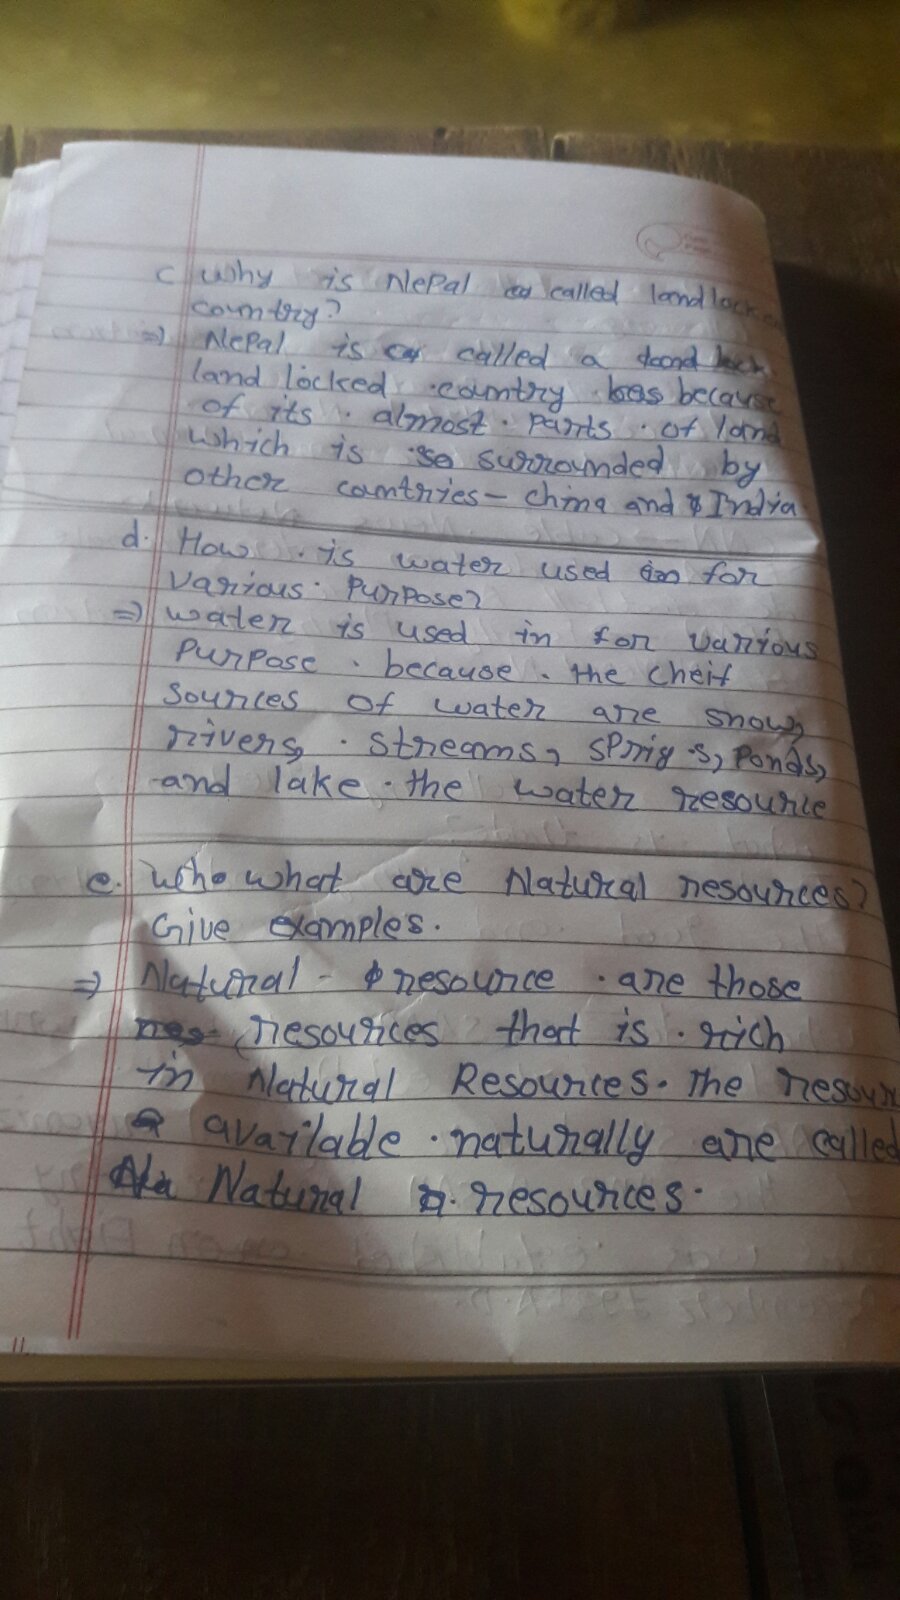 c Why is Nepal called landlocken
country?
=> Nepal is called a
land locked country because
of its almost parts of land
which is surrounded by
other countries - china and India
d. How is water used for
various purpose?
=> water is used in for various
purpose because the cheif
sources of water are snow,
rivers, streams, sprigs, ponds,
and lake the water resource
e. what are Natural resources?
Give examples.
=> Natural - resource are those
resources that is rich
in Natural Resources. The resour
available naturally are called
Natural resources.